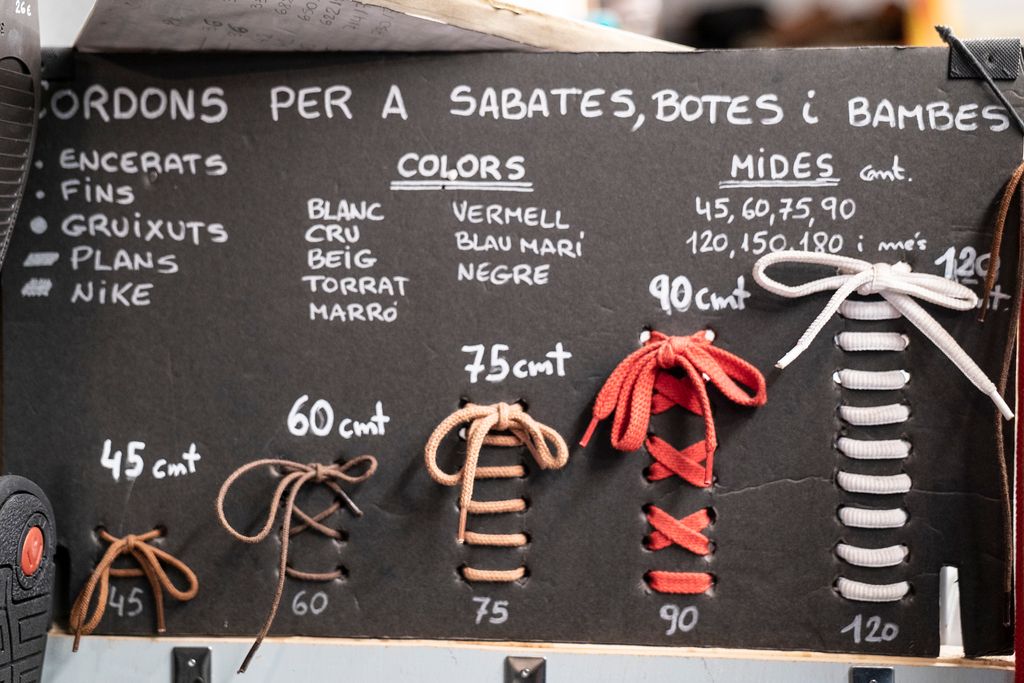 CORDONS PER A SABATES, BOTES i BAMBES
• ENCERATS
• FINS
• GRUIXUTS
PLANS
NIKE
COLORS
BLANC
CRU
BEIG
TORRAT
MARRÓ
VERMELL
BLAU MARÍ
NEGRE
MIDES cmt.
45, 60, 75, 90
120, 150, 180 i més
45 cmt
60 cmt
75 cmt
90 cmt
120
45
60
75
90
120
26€